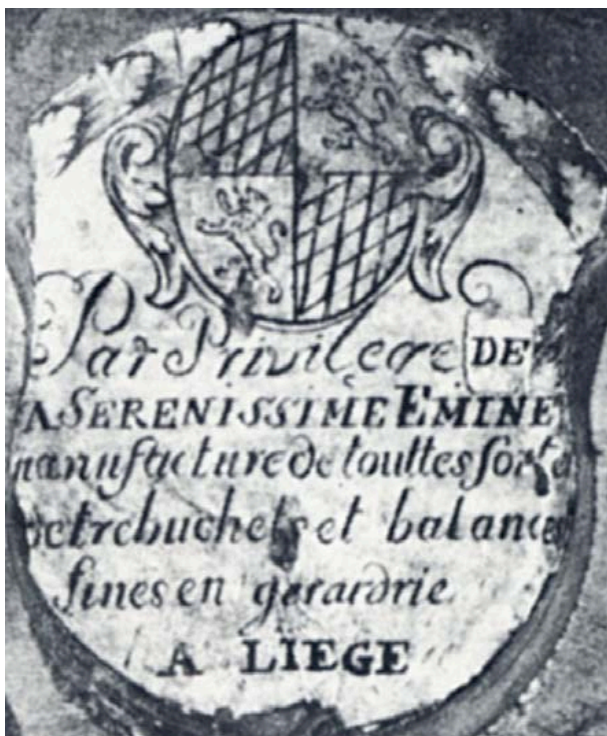 Par Privilege DE
A SERENISSIME EMINE
manufacture de touttes sorte
de trebuchets et balances
fines en gerardrie
A LIEGE